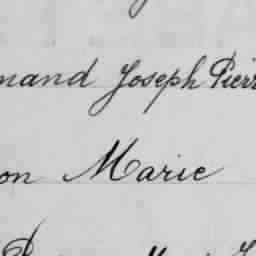 mand Joseph Pierr
on Marie